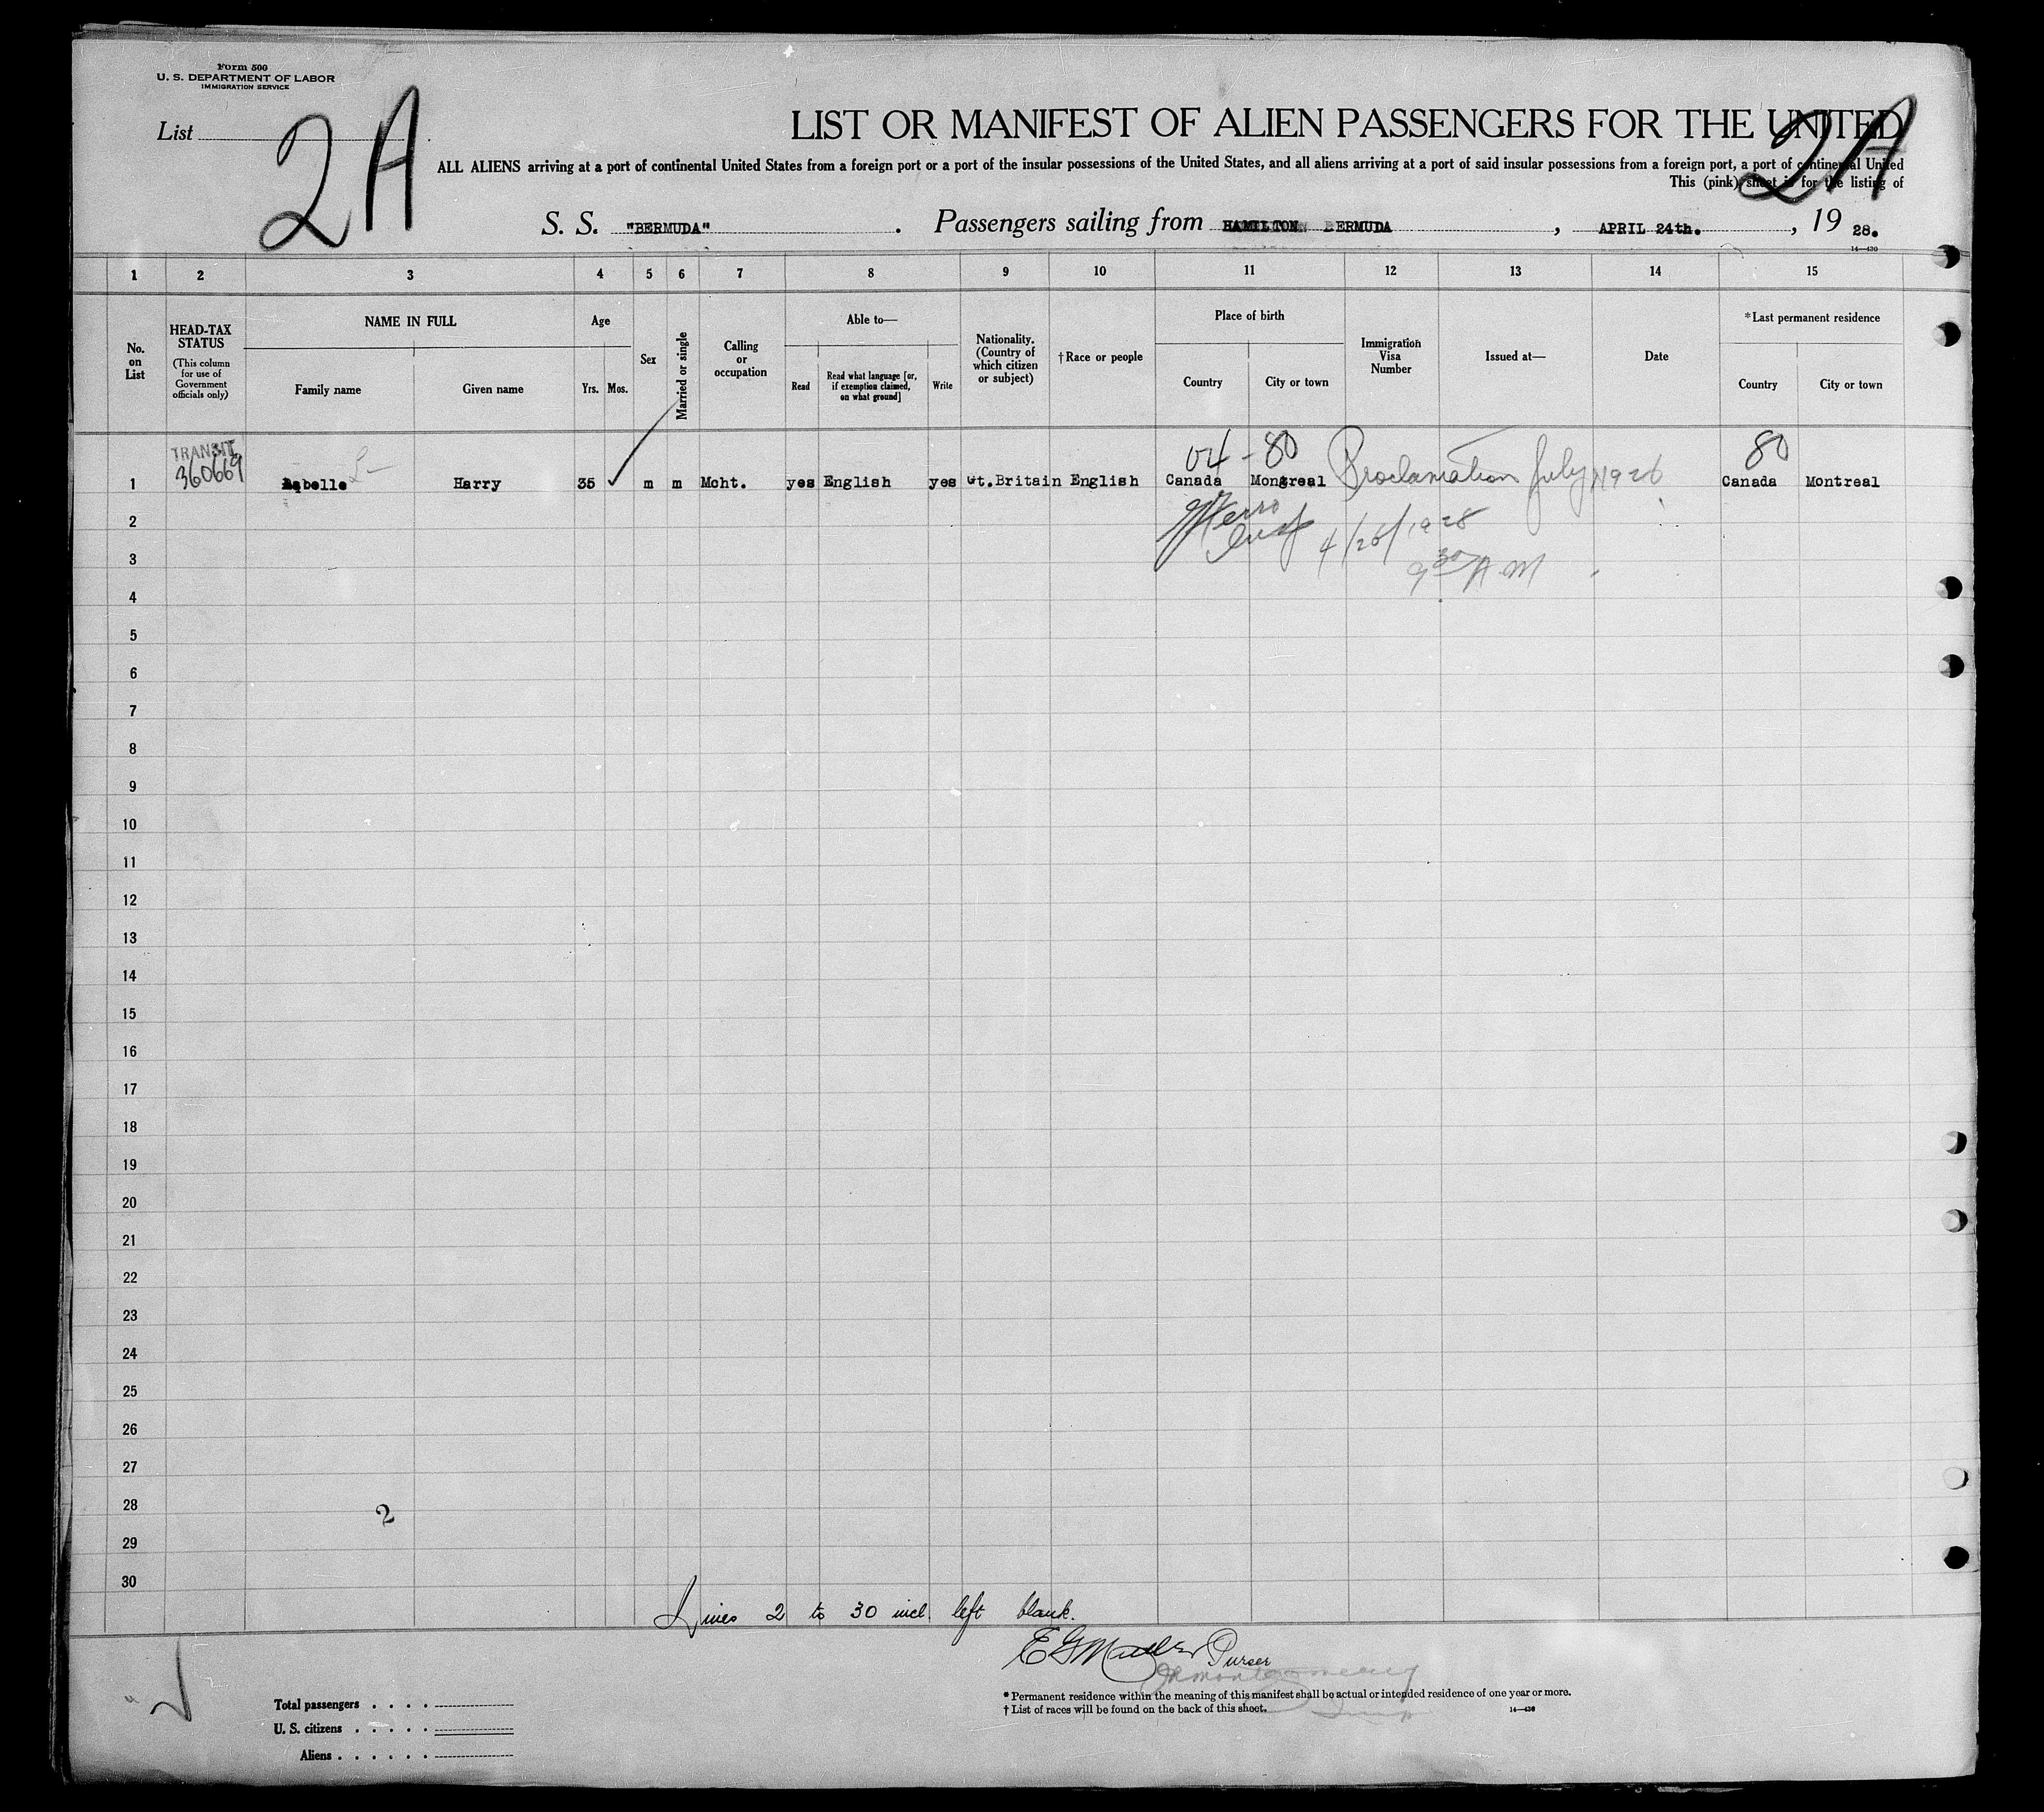 Form 500
U. S. DEPARTMENT OF LABOR
IMMIGRATION SERVICE
List
2A
2A
LIST OR MANIFEST OF ALIEN PASSENGERS FOR THE UNITED
ALL ALIENS arriving at a port of continental United States from a foreign port or a port of the insular possessions of the United States, and all aliens arriving at a port of said insular possessions from a foreign port, a port of continental United
This (pink) sheet is for the listing of
S. S. "BERMUDA" . Passengers sailing from HAMILTON BERMUDA , APRIL 24th. , 19 28.
14—430
1 2 3 4 5 6 7 8 9 10 11 12 13 14 15
No. on List
HEAD-TAX STATUS
(This column for use of Government officials only)
NAME IN FULL
Family name
Given name
Age
Yrs. Mos.
Sex
Married or single
Calling or occupation
Able to—
Read
Read what language [or, if exemption claimed, on what ground]
Write
Nationality. (Country of which citizen or subject)
†Race or people
Place of birth
Country
City or town
Immigration Visa Number
Issued at—
Date
*Last permanent residence
Country
City or town
TRANSIT
360669
04 - 80
80
1 Harry 35 m m Mcht. yes English yes Gt.Britain English Canada Montreal Proclamation July 1926 Canada Montreal
2
4/26/1928
3
9 30 A.M
4
5
6
7
8
9
10
11
12
13
14
15
16
17
18
19
20
21
22
23
24
25
26
27
28
2
29
30
Lines 2 to 30 incl. left blank.
Purser
Total passengers . . . .
U. S. citizens . . . . .
Aliens . . . . . .
* Permanent residence within the meaning of this manifest shall be actual or intended residence of one year or more.
† List of races will be found on the back of this sheet.
14—430